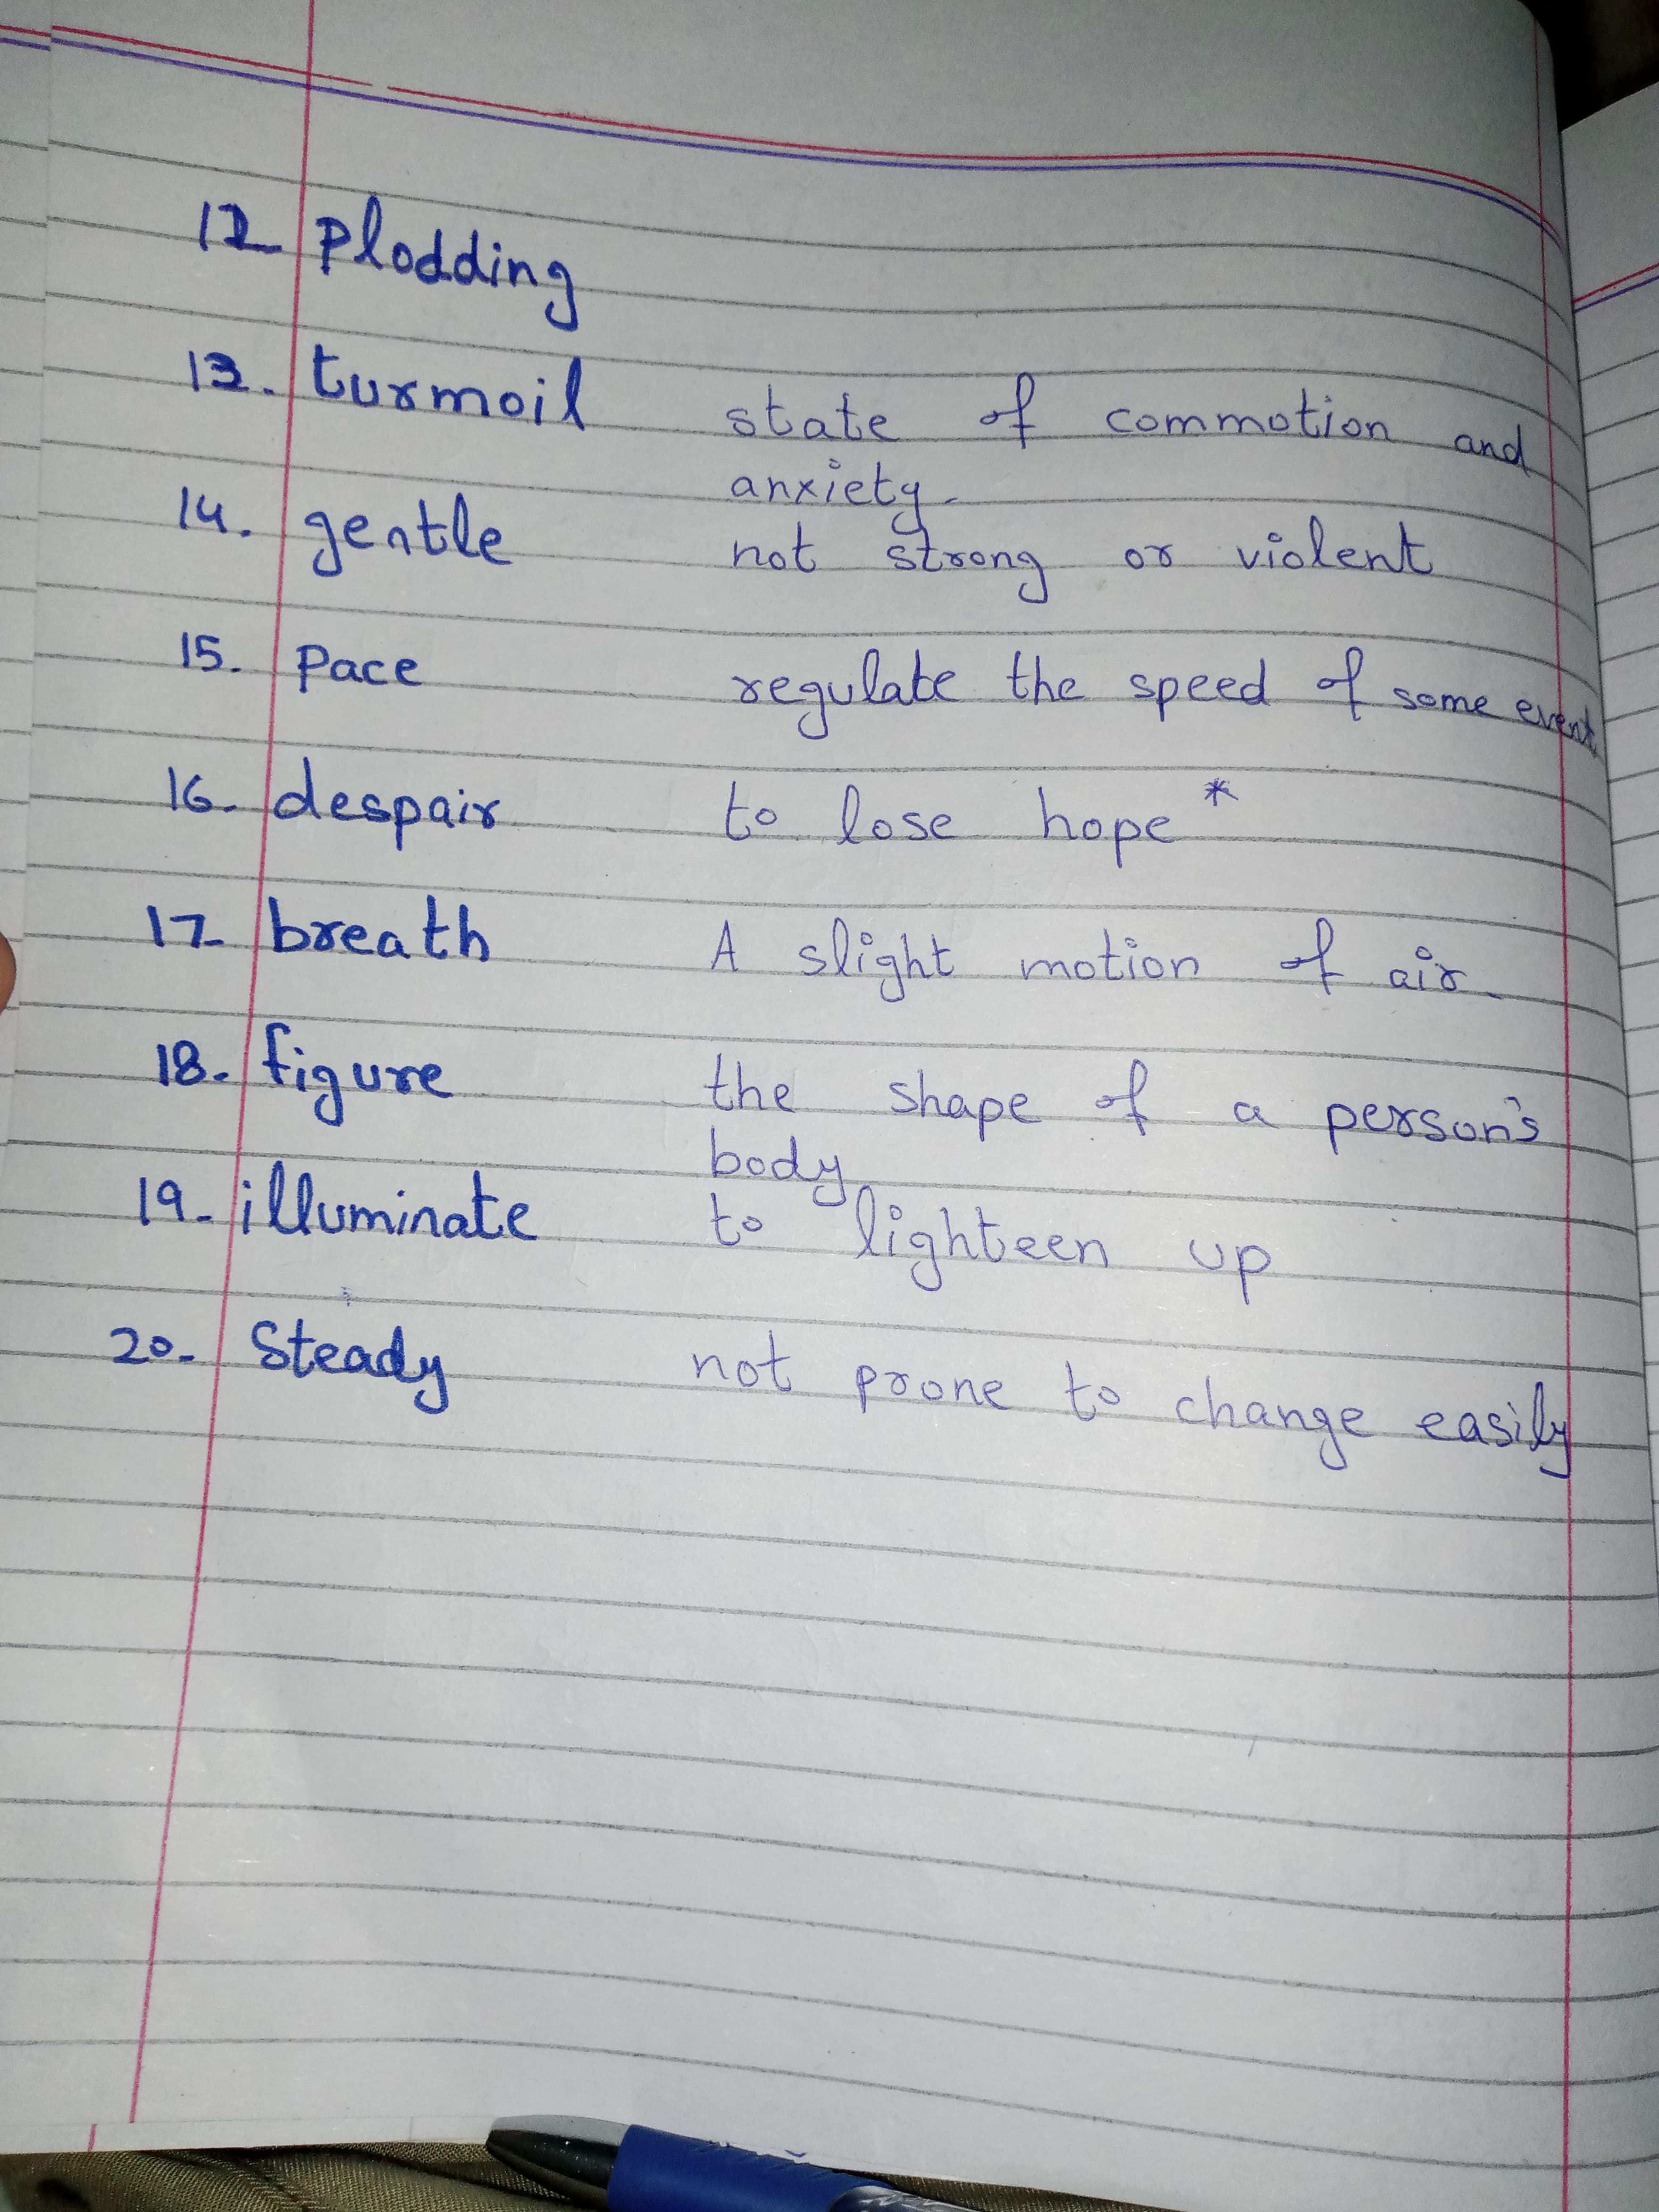 12 Plodding
13. turmoil state of commotion and
anxiety.
14. gentle not strong or violent
15. Pace regulate the speed of some event
16. despair to lose hope *
17 breath A slight motion of air.
18. figure the shape of a person's
body
19. illuminate to lighteen up
20. Steady not prone to change easily